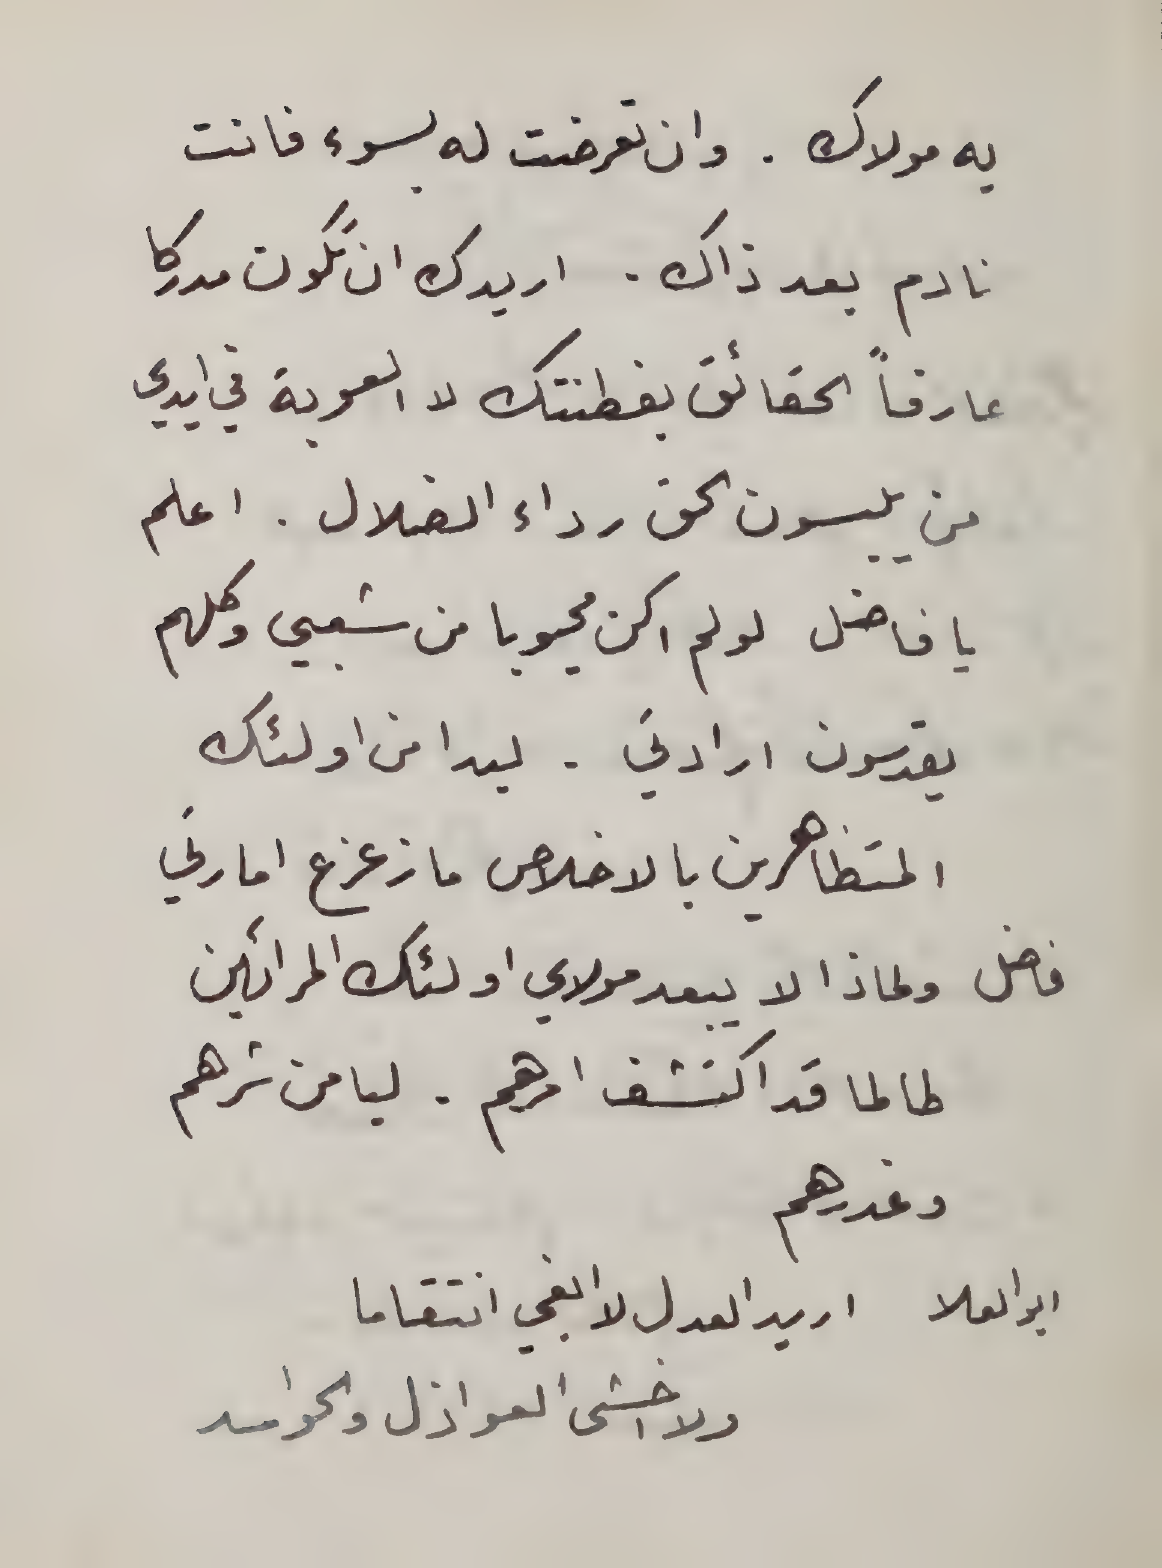 به مولاك . وان تعرضت له بسوء فانت
نادم بعد ذاك . اريدك ان تكون مدركا
عارفاً الحقائق بفطنتك لا العوبة في ايدي
من يلبسون الحق رداء الضلال . اعلم
يا فاضل لولم اكن محبوبا من شعبي وكلهم
يقدسون ارادتي . لبدا من اولئك
المتظاهرين بالاخلاص ما زعزع امارتي
فاضل ولماذا لا يبعد مولاي اولئك المرائين
طالما قد اكتشف امرهم . ليامن شرهم
وغدرهم
ابو العلا اريد العدل لا ابغي انتقاما
ولا اخشى العواذل والحواسد